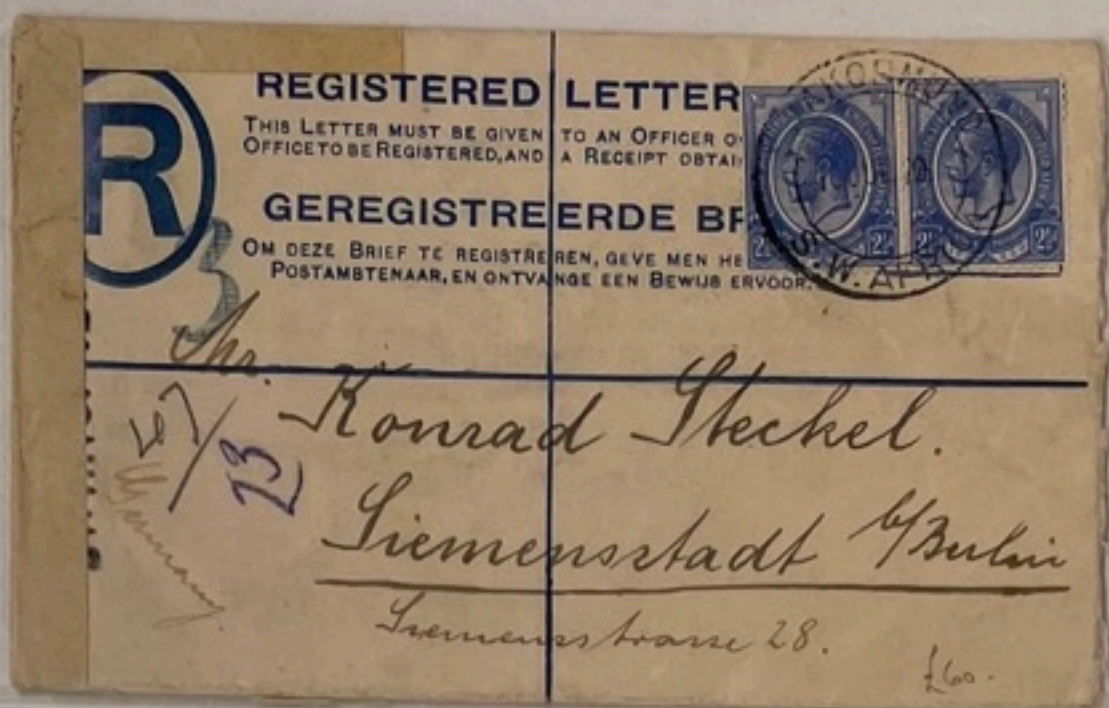 R
REGISTERED LETTER
THIS LETTER MUST BE GIVEN TO AN OFFICER O
OFFICE TO BE REGISTERED, AND A RECEIPT OBTAI
GEREGISTREERDE BR
OM DEZE BRIEF TE REGISTREREN, GEVE MEN HE
POSTAMBTENAAR, EN ONTVANGE EEN BEWIJS ERVOOR.
2½ 2½ 2½ 2½
S.W. AFRICA
Konrad Steckel.
Siemensstadt b/Berlin
Siemensstrasse 28.
Germany
£60.